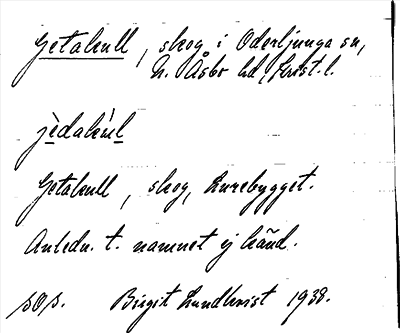 Getakull, skog i Oderljunga sn,
N. Åsbo hd, Krist. l.
jèdakùl
Getakull, skog, Lurebygget.
Anledn. t. namnet ej känd.
SOS. Birgit Lundkvist 1938.